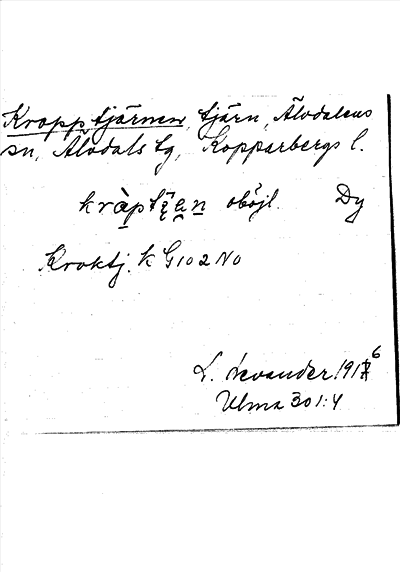 Kropptjärnen, tjärn, Älvdalens
sn, Älvdals tg, Kopparbergs l.
oböjl. Dy
Kroktj. k G102 NO
L. Levander 1916
Ulma 301:4